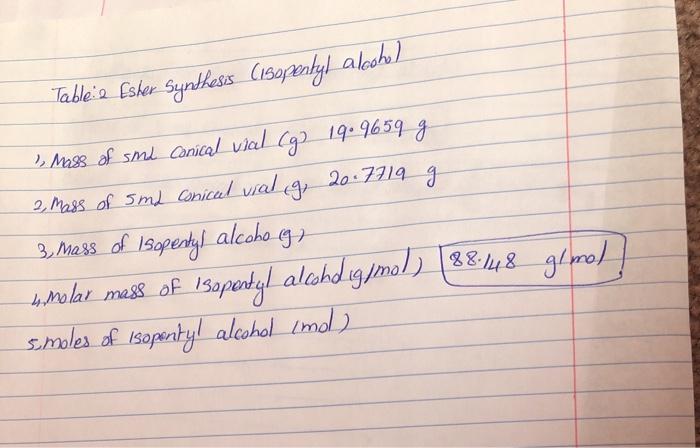 Table:2 Ester Synthesis (isopentyl alcohol)
1, Mass of 5mL Conical vial (g) 19.9659 g
2, Mass of 5mL Conical vial (g) 20.7719 g
3, Mass of Isopentyl alcoho (g)
4, Molar mass of Isopentyl alcohol (g/mol) 88.148 g/mol
5, moles of Isopentyl alcohol (mol)